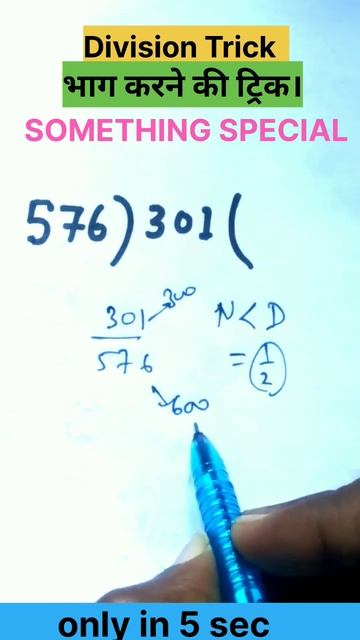 Division Trick
भाग करने की ट्रिक।
SOMETHING SPECIAL
576)301(
301→300
576
→600
N<D
=1/2
only in 5 sec